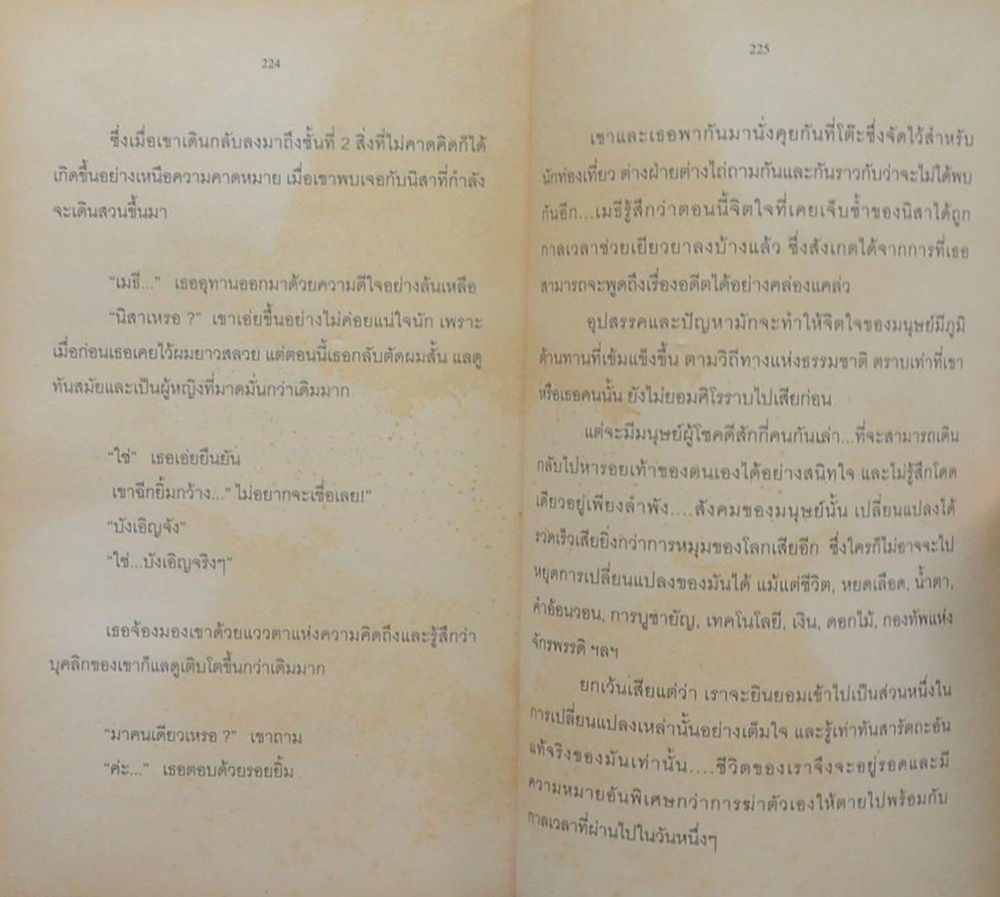 224
ซึ่งเมื่อเขาเดินกลับลงมาถึงชั้นที่ 2 สิ่งที่ไม่คาดคิดก็ได้
เกิดขึ้นอย่างเหนือความคาดหมาย เมื่อเขาพบเจอกับนิสาที่กำลัง
จะเดินสวนขึ้นมา
“เมธี...” เธออุทานออกมาด้วยความดีใจอย่างล้นเหลือ
“นิสาเหรอ ?” เขาเอ่ยขึ้นอย่างไม่ค่อยแน่ใจนัก เพราะ
เมื่อก่อนเธอเคยไว้ผมยาวสลวย แต่ตอนนี้เธอกลับตัดผมสั้น แลดู
ทันสมัยและเป็นผู้หญิงที่มาดมั่นกว่าเดิมมาก
“ใช่” เธอเอ่ยยืนยัน
เขาฉีกยิ้มกว้าง...” ไม่อยากจะเชื่อเลย!”
“บังเอิญจัง”
“ใช่...บังเอิญจริงๆ”
เธอจ้องมองเขาด้วยแววตาแห่งความคิดถึงและรู้สึกว่า
บุคลิกของเขาก็แลดูเติบโตขึ้นกว่าเดิมมาก
“มาคนเดียวเหรอ ?” เขาถาม
“ค่ะ...” เธอตอบด้วยรอยยิ้ม
225
เขาและเธอพากันมานั่งคุยกันที่โต๊ะซึ่งจัดไว้สำหรับ
นักท่องเที่ยว ต่างฝ่ายต่างไถ่ถามกันและกันราวกับว่าจะไม่ได้พบ
กันอีก...เมธีรู้สึกว่าตอนนี้จิตใจที่เคยเจ็บช้ำของนิสาได้ถูก
กาลเวลาช่วยเยียวยาลงบ้างแล้ว ซึ่งสังเกตได้จากการที่เธอ
สามารถจะพูดถึงเรื่องอดีตได้อย่างคล่องแคล่ว
อุปสรรคและปัญหามักจะทำให้จิตใจของมนุษย์มีภูมิ
ต้านทานที่เข้มแข็งขึ้น ตามวิถีทางแห่งธรรมชาติ ตราบเท่าที่เขา
หรือเธอคนนั้น ยังไม่ยอมศิโรราบไปเสียก่อน
แต่จะมีมนุษย์ผู้โชคดีสักกี่คนกันเล่า...ที่จะสามารถเดิน
กลับไปหารอยเท้าของตนเองได้อย่างสนิทใจ และไม่รู้สึกโดด
เดียวอยู่เพียงลำพัง....สังคมของมนุษย์นั้น เปลี่ยนแปลงได้
รวดเร็วเสียยิ่งกว่าการหมุนของโลกเสียอีก ซึ่งใครก็ไม่อาจจะไป
หยุดการเปลี่ยนแปลงของมันได้ แม้แต่ชีวิต, หยดเลือด, น้ำตา,
คำอ้อนวอน, การบูชายัญ, เทคโนโลยี, เงิน, ดอกไม้, กองทัพแห่ง
จักรพรรดิ ฯลฯ
ยกเว้นเสียแต่ว่า เราจะยินยอมเข้าไปเป็นส่วนหนึ่งใน
การเปลี่ยนแปลงเหล่านั้นอย่างเต็มใจ และรู้เท่าทันสารัตถะอัน
แท้จริงของมันเท่านั้น....ชีวิตของเราจึงจะอยู่รอดและมี
ความหมายอันพิเศษกว่าการฆ่าตัวเองให้ตายไปพร้อมกับ
กาลเวลาที่ผ่านไปในวันหนึ่งๆ